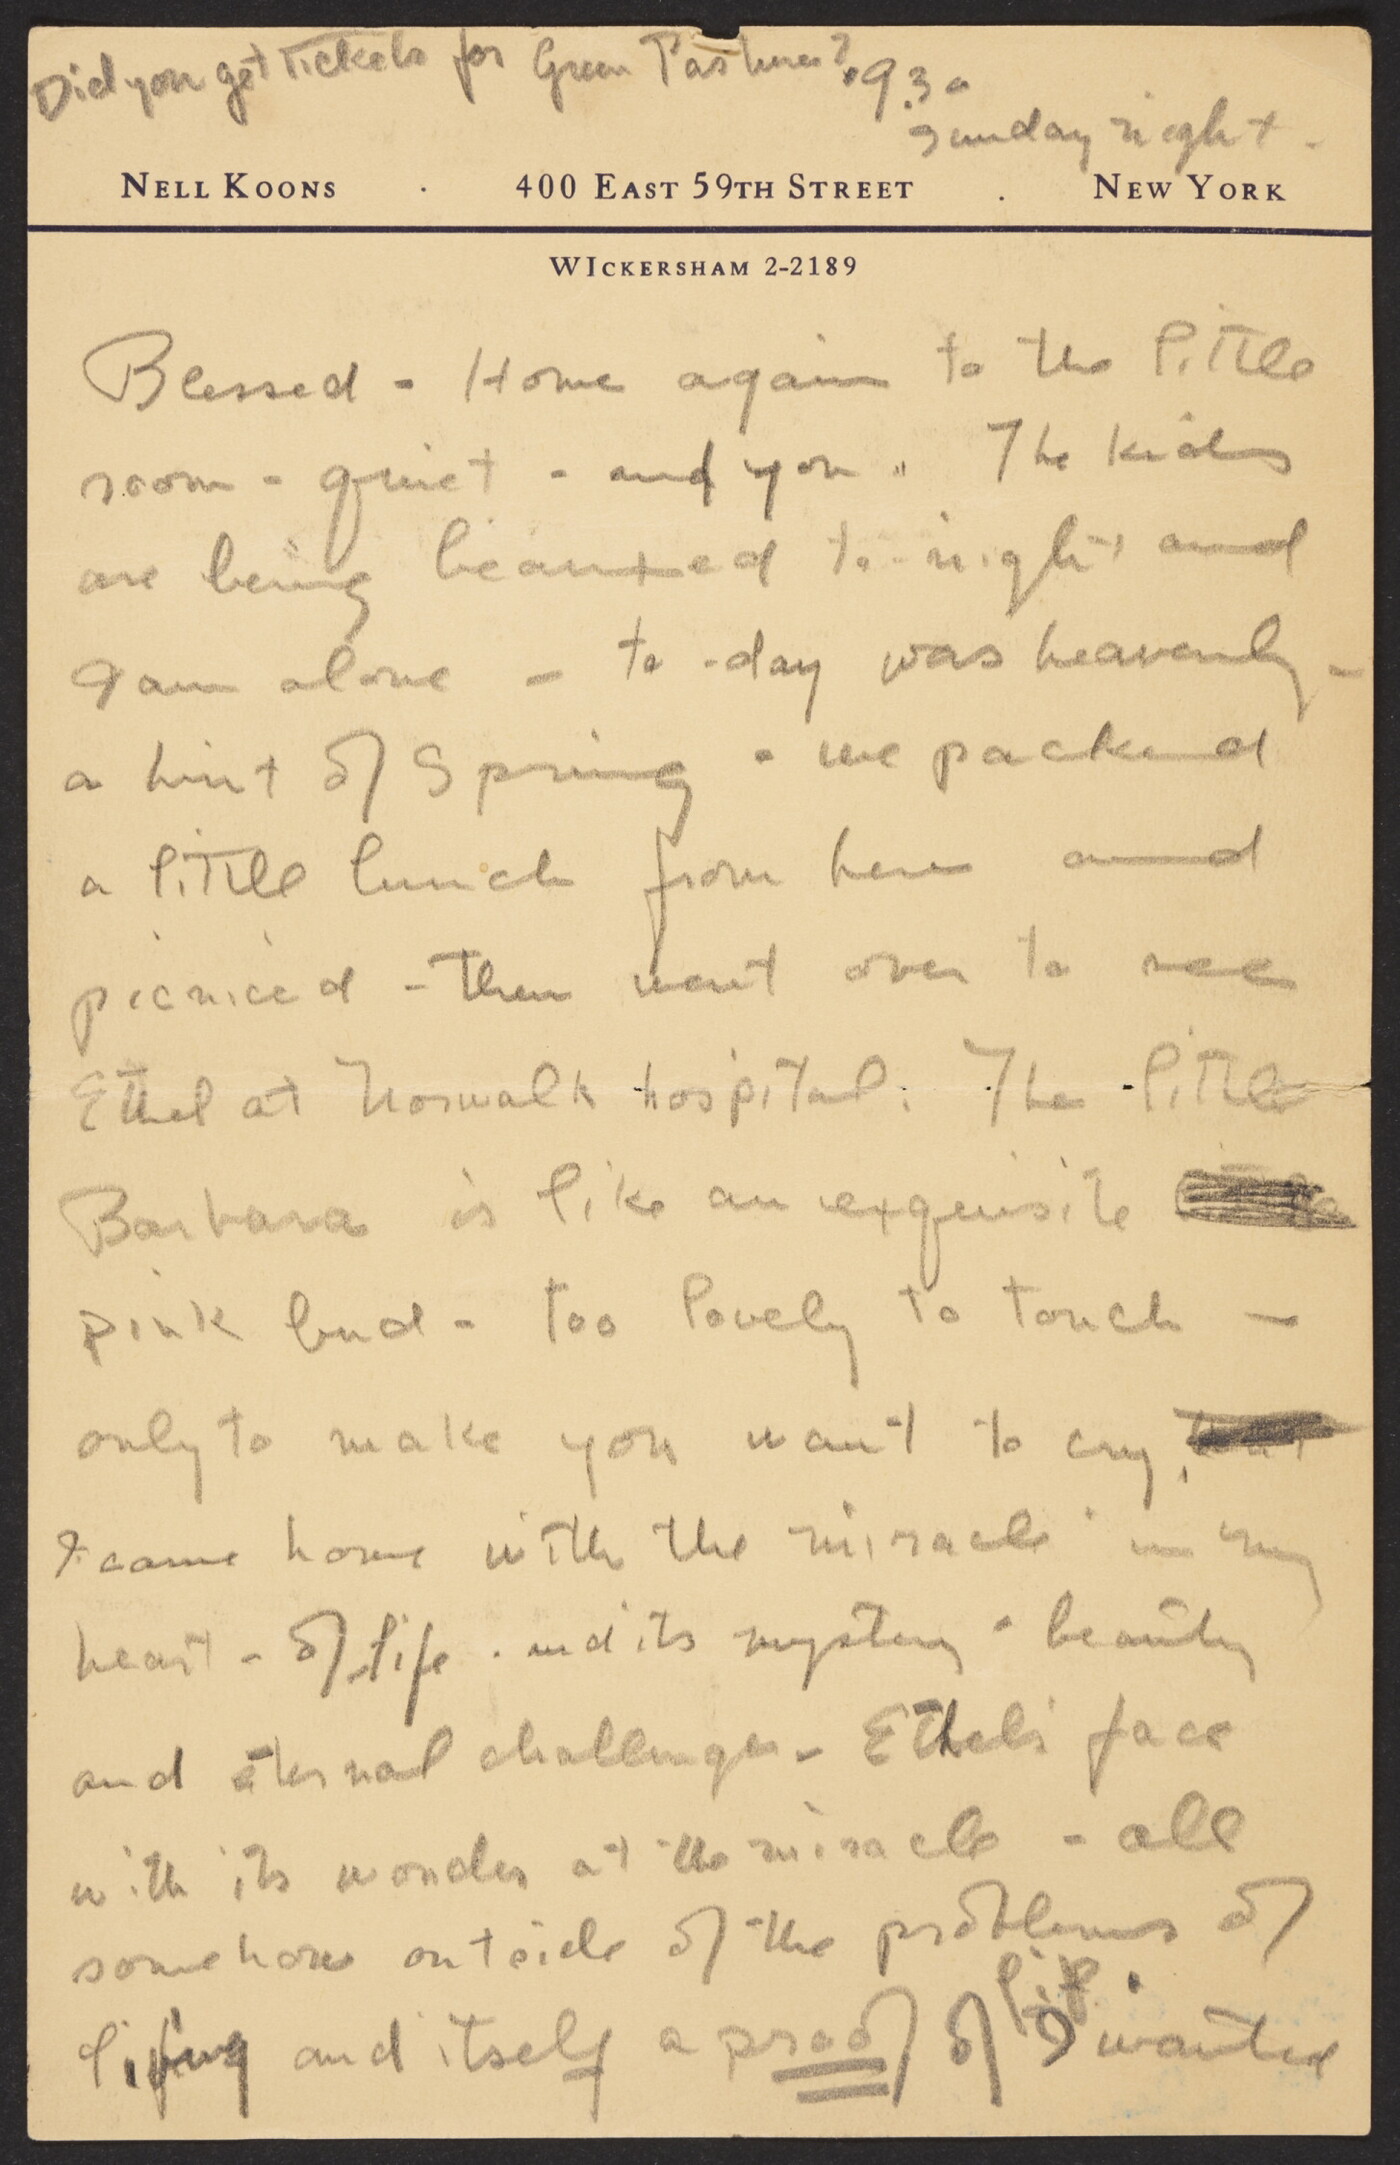 Did you get tickets for Green Pastures?
9.30
Sunday night.
NELL KOONS . 400 EAST 59TH STREET . NEW YORK
WICKERSHAM 2-2189
Blessed - Home again to the little
room - quiet - and you. The kids
are being to-night and
I am alone - to-day was heavenly -
a hint of Spring - we packed
a little lunch from here and
picniced - then went over to see
Ethel at Norwalk hospital. The little
Barbara is like an exquisite
pink bud - too lovely to touch -
only to make you want to cry,
I came home with the miracle in my
heart - of life and its mystery - beauty
and eternal challenge - Ethel's face
with its wonder at the miracle - all
somehow outside of the problems of
living and itself a proof of life. I wanted